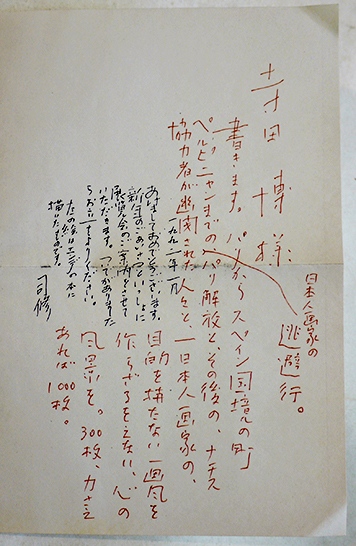 寺田 博様
日本人画家の
逃避行。
書きます。パリからスペイン国境の町
ペルピニャンまでの、パリ解放と、その後の、ナチス
協力者が幽閉された人々と、一日本人画家の、
目的を持たない画風を
作らざるをえない、心の
風景を。300枚、力
あれば1000枚。
一九九一年一月
あけましておめでとうございます。
新年のごあいさつといっしょに
展覧会のご案内をさせて
いただきます。ついでがありました
らおより下さい。
左の絵は
描いたものです。
司修